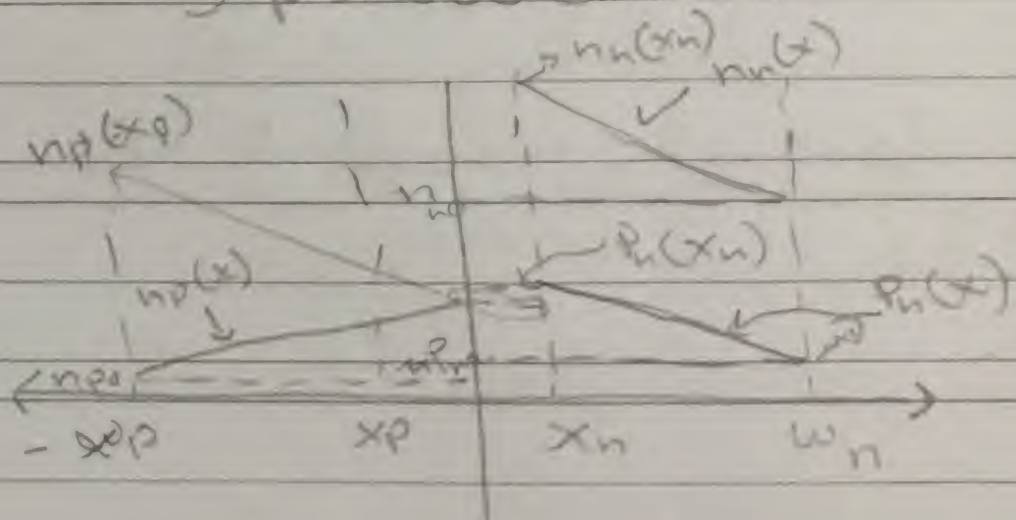 nn(xn)
nn(x)
np(xp)
nn0
Pn(xn)
np(x)
Pn(x)
np0
- wp
xp
xn
wn